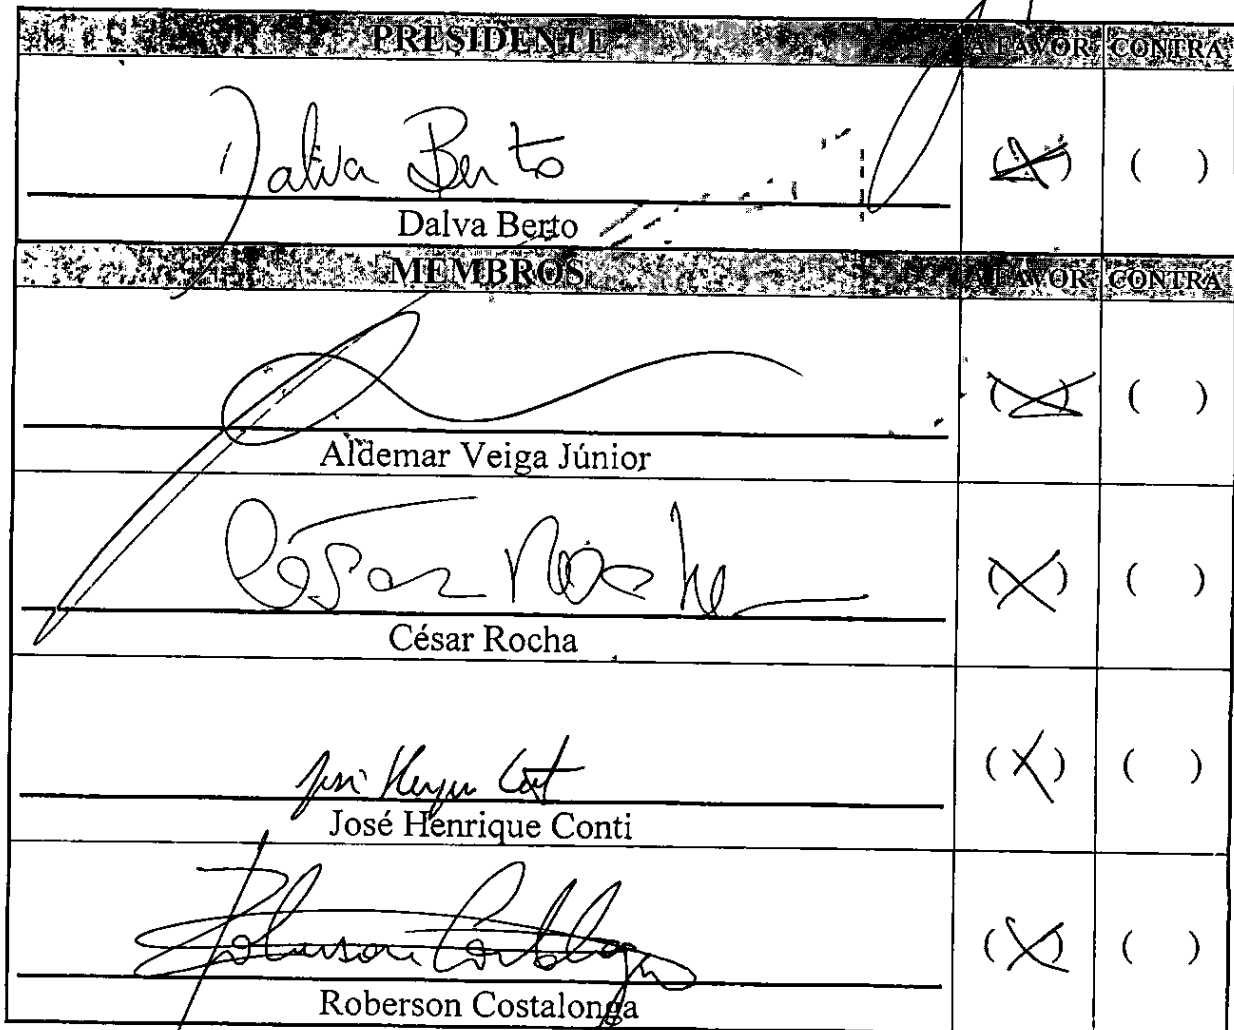 PRESIDENTE A FAVOR CONTRA
Dalva Berto (X) ( )
Dalva Berto
MEMBROS A FAVOR CONTRA
(X) ( )
Aldemar Veiga Júnior
César Rocha (X) ( )
César Rocha
José Henrique Conti (X) ( )
José Henrique Conti
Roberson Costalonga (X) ( )
Roberson Costalonga